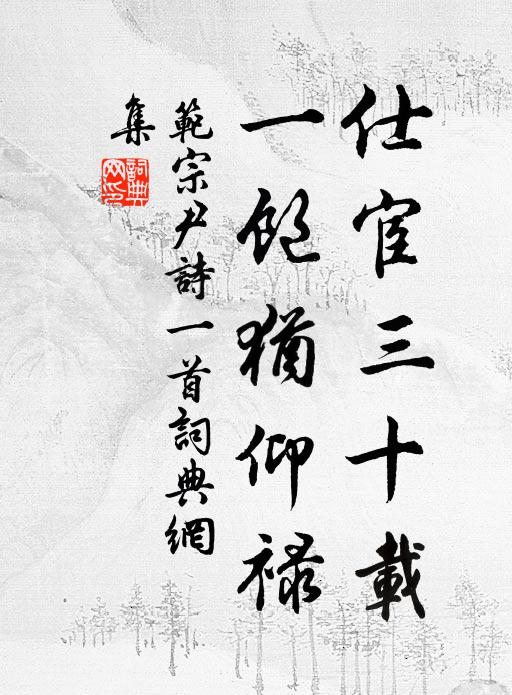 仕宦三十載
一飽猶仰祿
範宗尹詩一首詞典網
集
詞典
网印